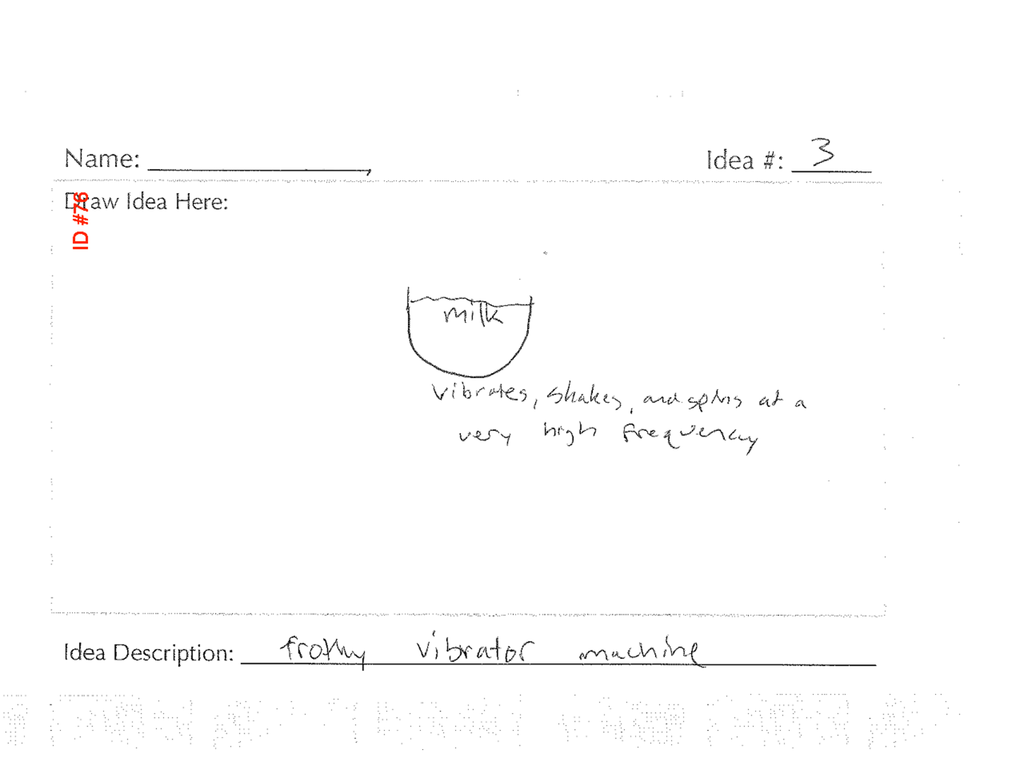 Name:
Idea #: 3
Draw Idea Here:
ID #76
milk
vibrates, shakes, and spins at a
very high frequency
Idea Description: frothy vibrator machine